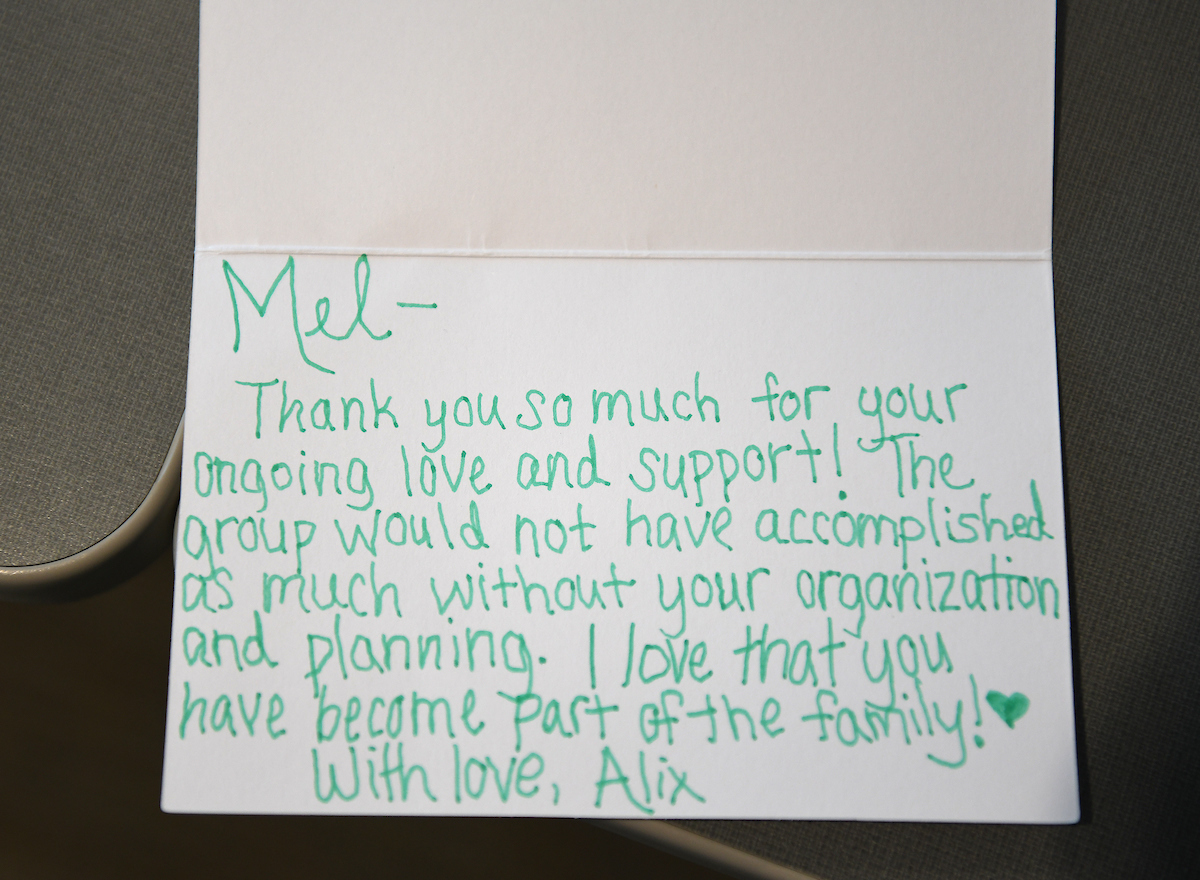 Mel-
Thank you so much for your
ongoing love and support! The
group would not have accomplished
as much without your organization
and planning. I love that you
have become part of the family! ♥
With love, Alix